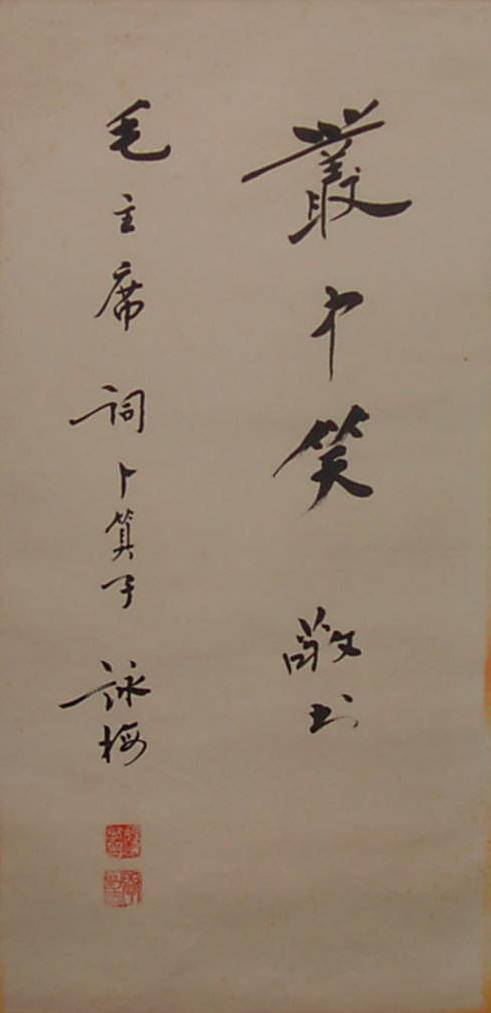 叢中笑 敬书
毛主席 词卜算子 詠梅